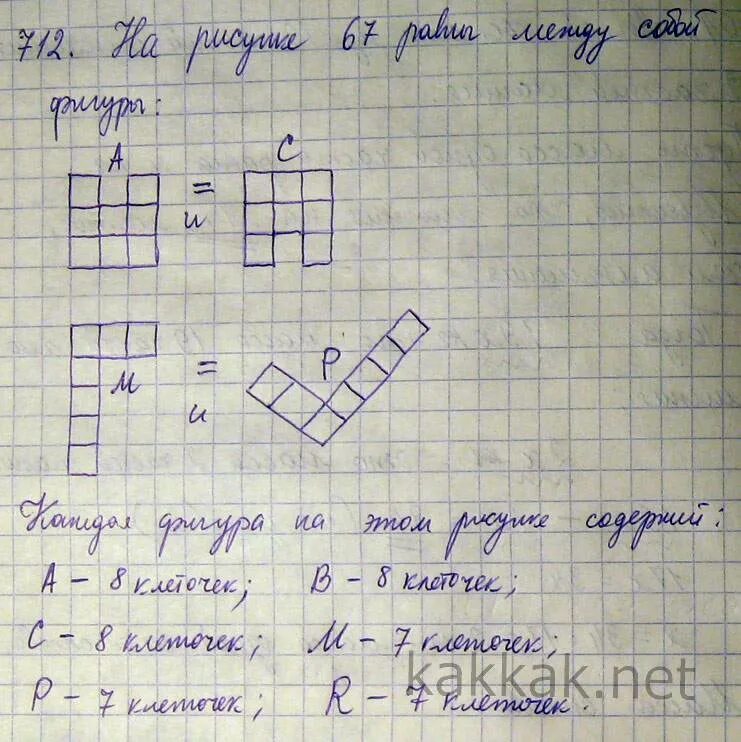 712. На рисунке 67 равны между собой
фигуры:
А = и С
М = и Р
Каждая фигура на этом рисунке содержит:
А – 8 клеточек; В – 8 клеточек;
С – 8 клеточек; М – 7 клеточек;
Р – 7 клеточек; R – 7 клеточек.
kakkak.net